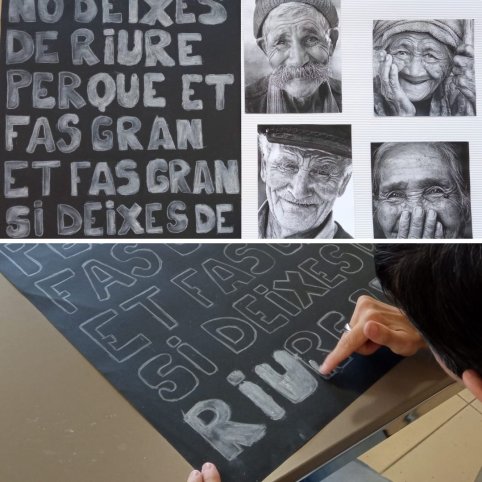 NO DEIXES
DE RIURE
PERQUE ET
FAS GRAN
ET FAS GRAN
SI DEIXES DE
FAS
ET FAS
SI DEIXES
RIURE